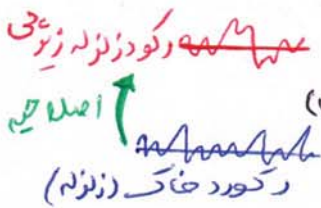 رکود زلزله
اصلاحیه
رکورد خاک (زلزله)